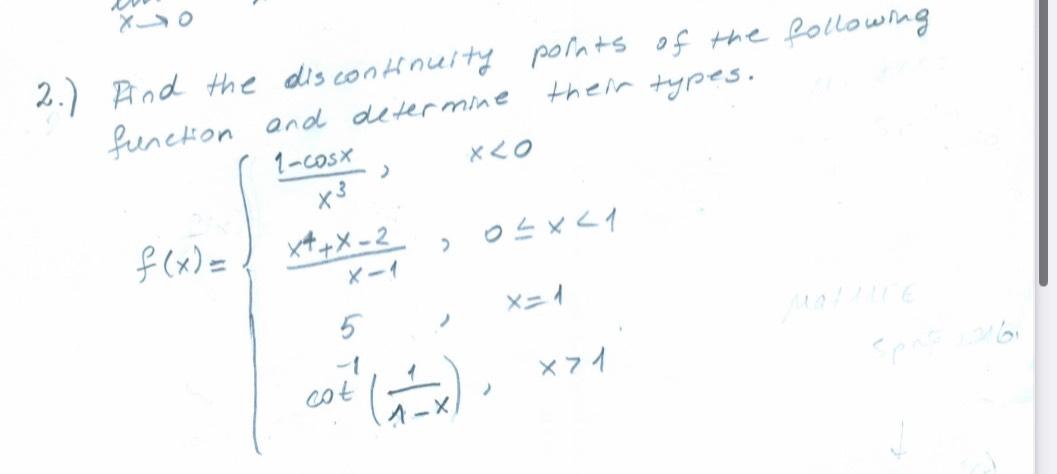 x→0
2.) Find the discontinuity points of the following
function and determine their types.
f(x) = { 1-cosx / x³ , x<0
x⁴+x-2 / x-1 , 0≤x<1
5 , x=1
cot⁻¹(1/(1-x)) , x>1